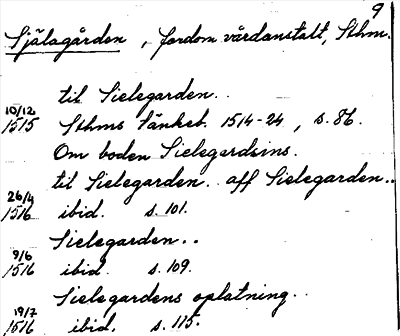 9
Själagården, fordom vårdanstalt, Sthm.
til Sielegarden..
10/12 1515 Sthms Tänkeb. 1514-24, s. 86.
Om boden Sielegardsins.
til Sielegarden.. aff Sielegarden..
26/4 1516 ibid. s. 101.
Sielegarden..
9/6 1516 ibid. s. 109.
Sielegardens oplatning..
19/7 1516 ibid. s. 115.